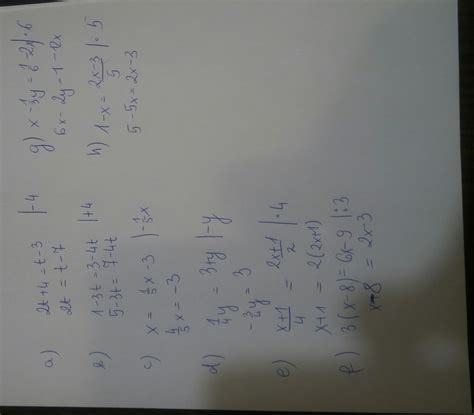 a) 2t+4=t-3 |-4
2t = t-7
b) 1-3t=3-4t |+4
5-3t = 7-4t
c) x = 1/5 x -3 |-1/5 x
4/5 x = -3
d) 1/4 y = 3+y |-y
-3/4 y = 3
e) (x+1)/4 = (2x+1)/2 |·4
x+1 = 2(2x+1)
f) 3(x-8)=6x-9 |:3
x-8 = 2x-3
g) x-1/3 y = 1/6-2x |·6
6x-2y=1-12x
h) 1-x = (2x-3)/5 |·5
5-5x=2x-3